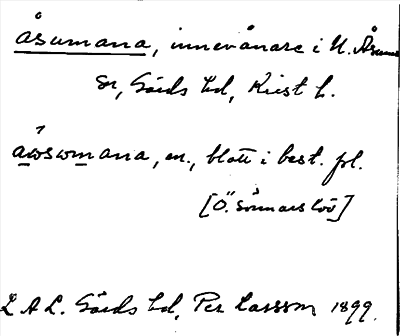 åsumana, innevånare i N. Åsum
Sn, Gärds hd, Krist l.
åosomana, m., blott i best. pl.
[Ö. Sönnarslöv]
L A L. Gärds hd, Per Larsson 1899.